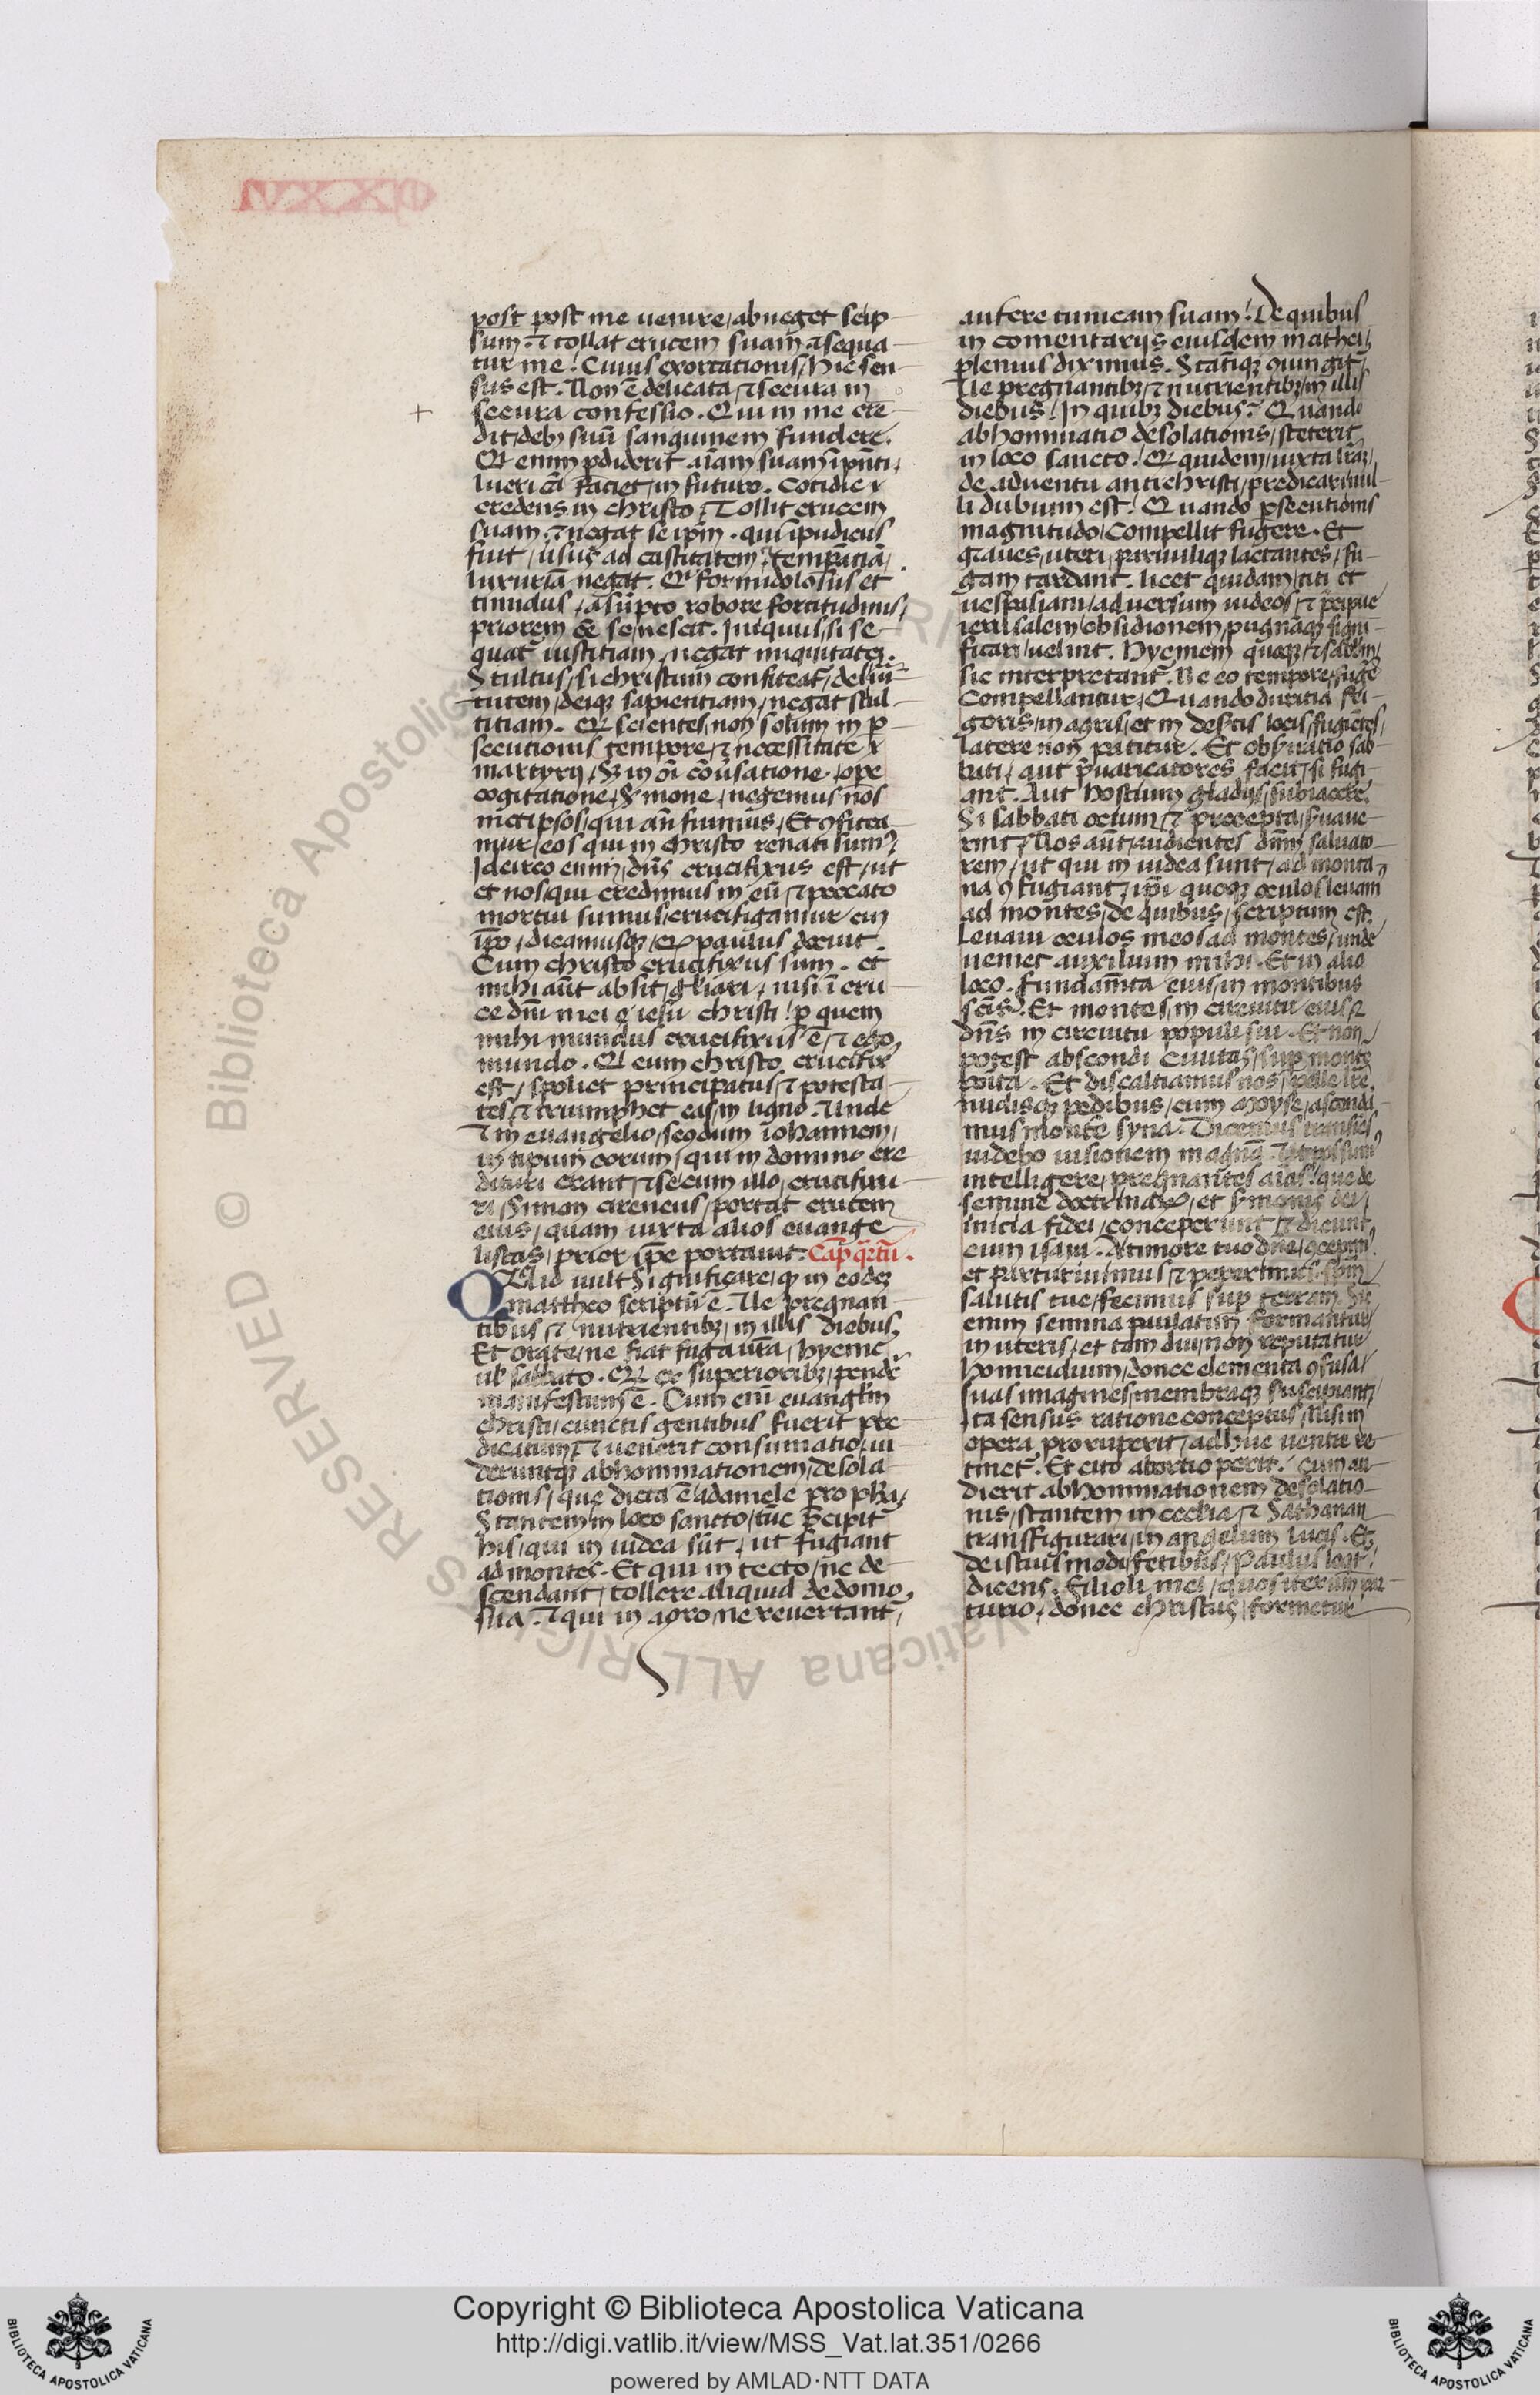 post post me uenire / abneget seip
sum ⁊ tollat crucem suam ⁊ sequa
tur me. Cuius exortationis / hic sen
sus est. Non ē delicata / ⁊ secura in
secura confessio. Qui in me cre
dit / debꝫ suū sanguinem fundere.
Qͥ enim ꝑdiderit aīam suam ī pn̄ti /
lucri cā faciet / in futuro. Cotidie
credens in christo / Tollit crucem
suam / ⁊ negat seipm̄. qui īpudicus
fuit / ūsus ad castitatem / tempātiā
luxuriā negat. Qͥ formidolosus et
timidus / asūpto robore fortitudinis /
priorem se / nescit. Iniquus / si se
quat̄ iustitiam / negat iniquitatē.
Stultus / si christum confiteat̄ / dei ūir
tutem / deiqꝫ sapientiam / negat stul
titiam. Qͥ scientes / non solum in ꝑ
secutionis tempore / ⁊ necessitate
martyrij / sꝫ in oī cōūsatione. ope
cogitatione / sermone / negemus nos
metipsos / qui an̄ fuimus / Et ꝯfitea
mur / eos qui in christo renati sumꝰ
Idcirco enim / dn̄s crucifixus est / ut
et nos / qui credimus in eū / ⁊ peccato
mortui sumus / crucifigamur / cū
ip̄o / dicamusqꝫ / qͩ paulus docuit.
Cum christo crucifixus sum. et
mihi aūt absit / gl̄iari / nisi ī cru
ce dn̄i mei iesu christi / ꝑ quem
mihi mundus crucifixus ē / ⁊ ego
mundo. Qͥ cum christo crucifix
est / spoliet principatus / ⁊ potesta
tes / ⁊ triumphet eas / in ligno. Unde
⁊ in euangelio / secdum iohannem /
in tipum eorum / qui in domino cre
dituri erant / ⁊ secum illo / crucifixu
ri / Simon cireneus / portat crucem
eius / quam iuxta alios euange
listas / prior ip̄e portauit. Cap̄ qrtū.
Qͩ uult significare / qͩ in eodeꝫ
mattheo scriptū ē. Ue pregnan
tibus ⁊ nutrientibꝫ / in illis diebus,
Et orate / ne fiat fuga ur̄a / hyeme
ul̄ sabbato. Qͩ ex superioribꝫ / pende
manifestum ē. Cum eni euanglīm
christi / cunctis gentibus fuerit pre
dicatum / ⁊ uenerit consumatio / ui
derintqꝫ abhominationem / desola
tionis / que dicta ē a daniele propha
Stantem in loco sancto / tūc p̄cipit̄
his / qui in iudea sūt / ut fugiant
ad montes. Et qui in tecto / ne de
scendant / tollere aliquid de domo
sua. ⁊ qui in agro / ne reuertant̄
auferre tunicam suam. De quibus
in comentarijs eiusdem mathei
plenius diximus. Statīqꝫ ꝯiungit
Ue pregnantibꝫ / ⁊ nutrientibꝫ / in illis
diebus. In quibꝫ diebus? Quando
abhominatio desolationis / steterit
in loco sancto. Qͩ quidem / iuxta lr̄aꝫ /
de aduentu antichristi / predicari nul
li dubium est. Quando ꝑsecutionis
magnitudo / Compellit fugere. Et
graues / uteri / paruuliqꝫ lactantes / fu
gam tardant. licet quidam / titi et
uespasiani / aduersum iudeos / ⁊ p̄cipue
ierusalem / obsidionem / pugnāqꝫ signi
ficari / uelint. Hyemem quoqꝫ / ⁊ sabbm̄
sic interpretant̄. Ne eo tempore / fuge
Compellantur / Quando duritia fri
goris / in agris / et in destis locis / fugiētes /
latere non patitur. Et obseruatio sab
bati / aut p̄uaricatores facit / si fugi
ant. Aut hostium gladijs / subiacere
Si sabbati ocium / ⁊ precepta / seruaue
rint / Nos aūt / audientes dnm̄ saluato
rem / ut qui in iudea sunt / ad monta
na ꝯfugiant / ip̄i quoqꝫ oculos leuam
ad montes / de quibus / scriptum est
Leuaui oculos meos ad montes / unde
ueniet auxilium mihi. Et in alio
loco. fundam̄ta eius / in montibus
scīs. Et montes / in circuitu eius
dn̄s in circuitu populi sui. Et non
potest abscondi Ciuitas / sup monte
poita. Et discaltiamus nos / pelle
nudisqꝫ pedibus / cum moyse / ascendi
mus monte syna. Dicemus transiēs
uidebo uisionem magnā. Ut possum
intelligere / pregnantes aīas / que de
semine doctrinaꝝ / et sermonis dei /
inicia fidei / conceperunt / ⁊ dicunt
cum isaia. A timore tuo dn̄e / ꝯcepim
et parturiuimus / ⁊ peperimus. spm̄
salutis tue / fecimus sup terram. Sic
enim semina paulatim formantur
in uteris / et tam diu / non reputatur
homicidium / donec elementa ꝯfusa
suas imagines / membraqꝫ suscipiant /
Ita sensus ratione conceptus / Nisi in
opera proruperit / adhuc uentre re
tinet̄. Et cito abortio perit. cum au
dierit abhominationem desolatio
nis / stantem in ecclia / ⁊ Sathanan
transfigurari / in angelum lucis. Et
de istius modi / fetibus / Paulus loqt̄
dicens. Filioli mei / quos iterum par
turio / donec christus / formetur
Copyright © Biblioteca Apostolica Vaticana
http://digi.vatlib.it/view/MSS_Vat.lat.351/0266
powered by AMLAD·NTT DATA